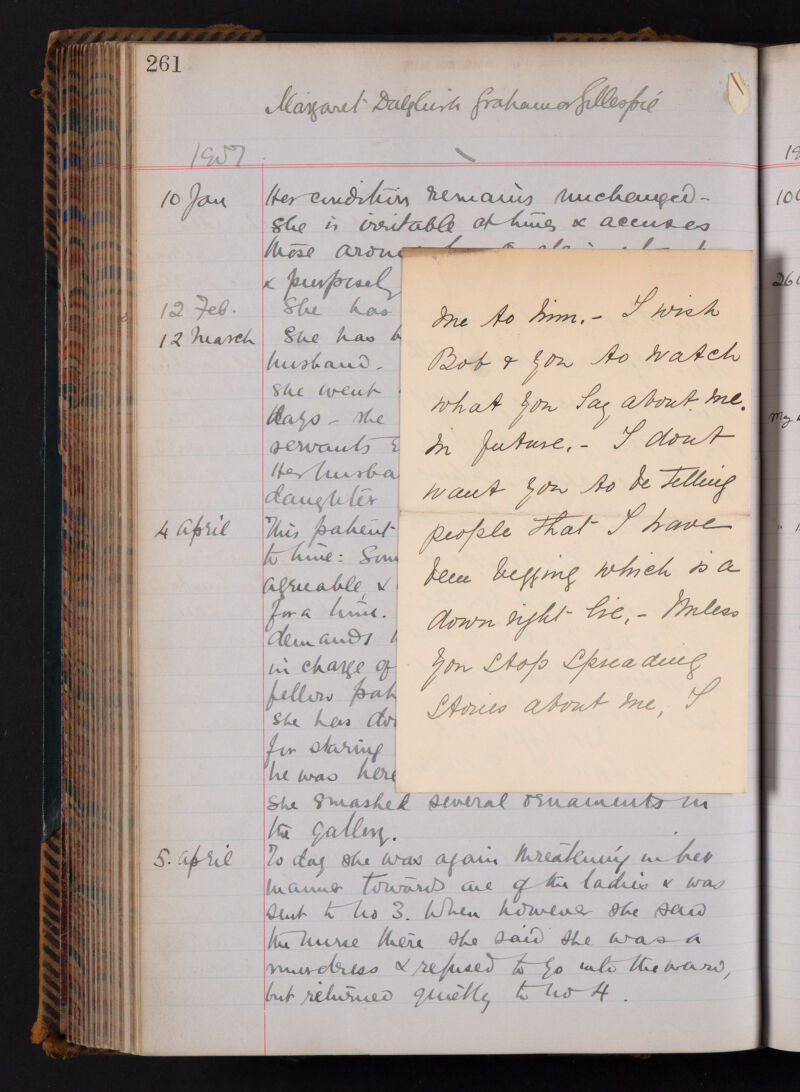 261
Margaret Dalgleish Graham or Gillespie
1907
10 Jan Her condition remains unchanged -
She is irritable at times & accuses
those
& purposely
12 Feb. She has
12 March She has
husband.
She went
days - she
servants
Her husba
daughter
4 April This patient
to time: Som
agreeable &
for a time.
demands
in charge of
fellow pat
She has
for staring
he was here
She smashed several ornaments in
the gallery.
5. April To day she was again threatening in her
manner towards one of the ladies & was
sent to No 3. When however she saw
the nurse there she said she was a
murderess & refused to go into the ward,
but returned quietly to No 4.
me to him. - I wish
Bob & you to watch
what you say about me.
in future. - I dont
want you to be telling
people that I have
been begging which is a
down right lie, - Unless
you stop spreading
stories about me, I
19
100
26